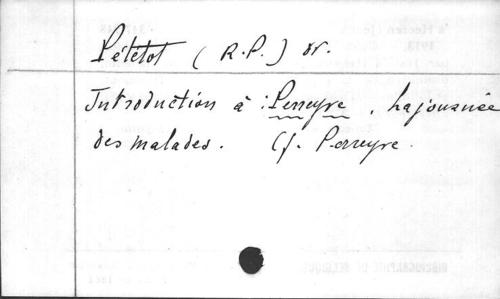 Pététot (R.P.) or.
Introduction à : Perreyve, La journée
des malades. Cf. Perreyve.